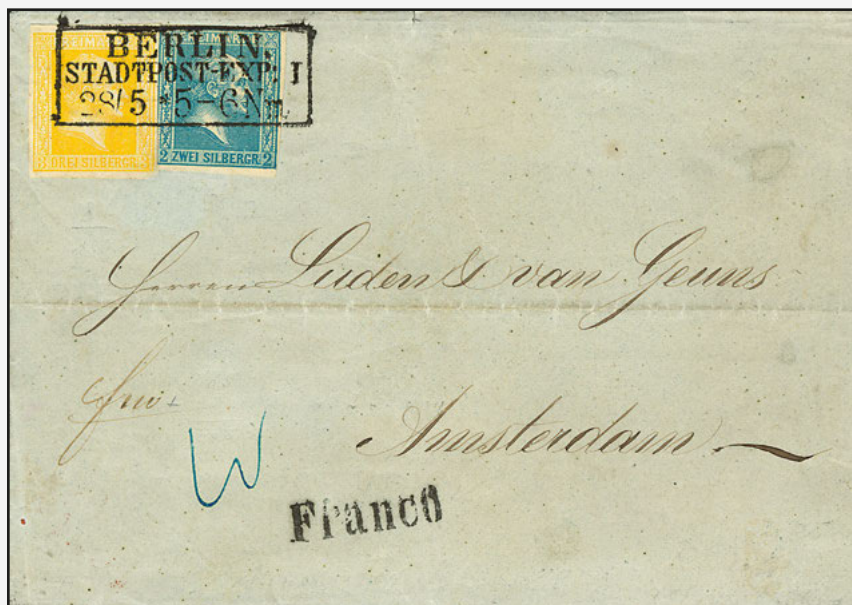 BERLIN,
STADTPOST-EXP: I
28/5 *5-6Nm.
FREIMARKE
3 DREI SILBERGR. 3
2 ZWEI SILBERGR. 2
Herren Luden & van Geuns
Amsterdam
Franco